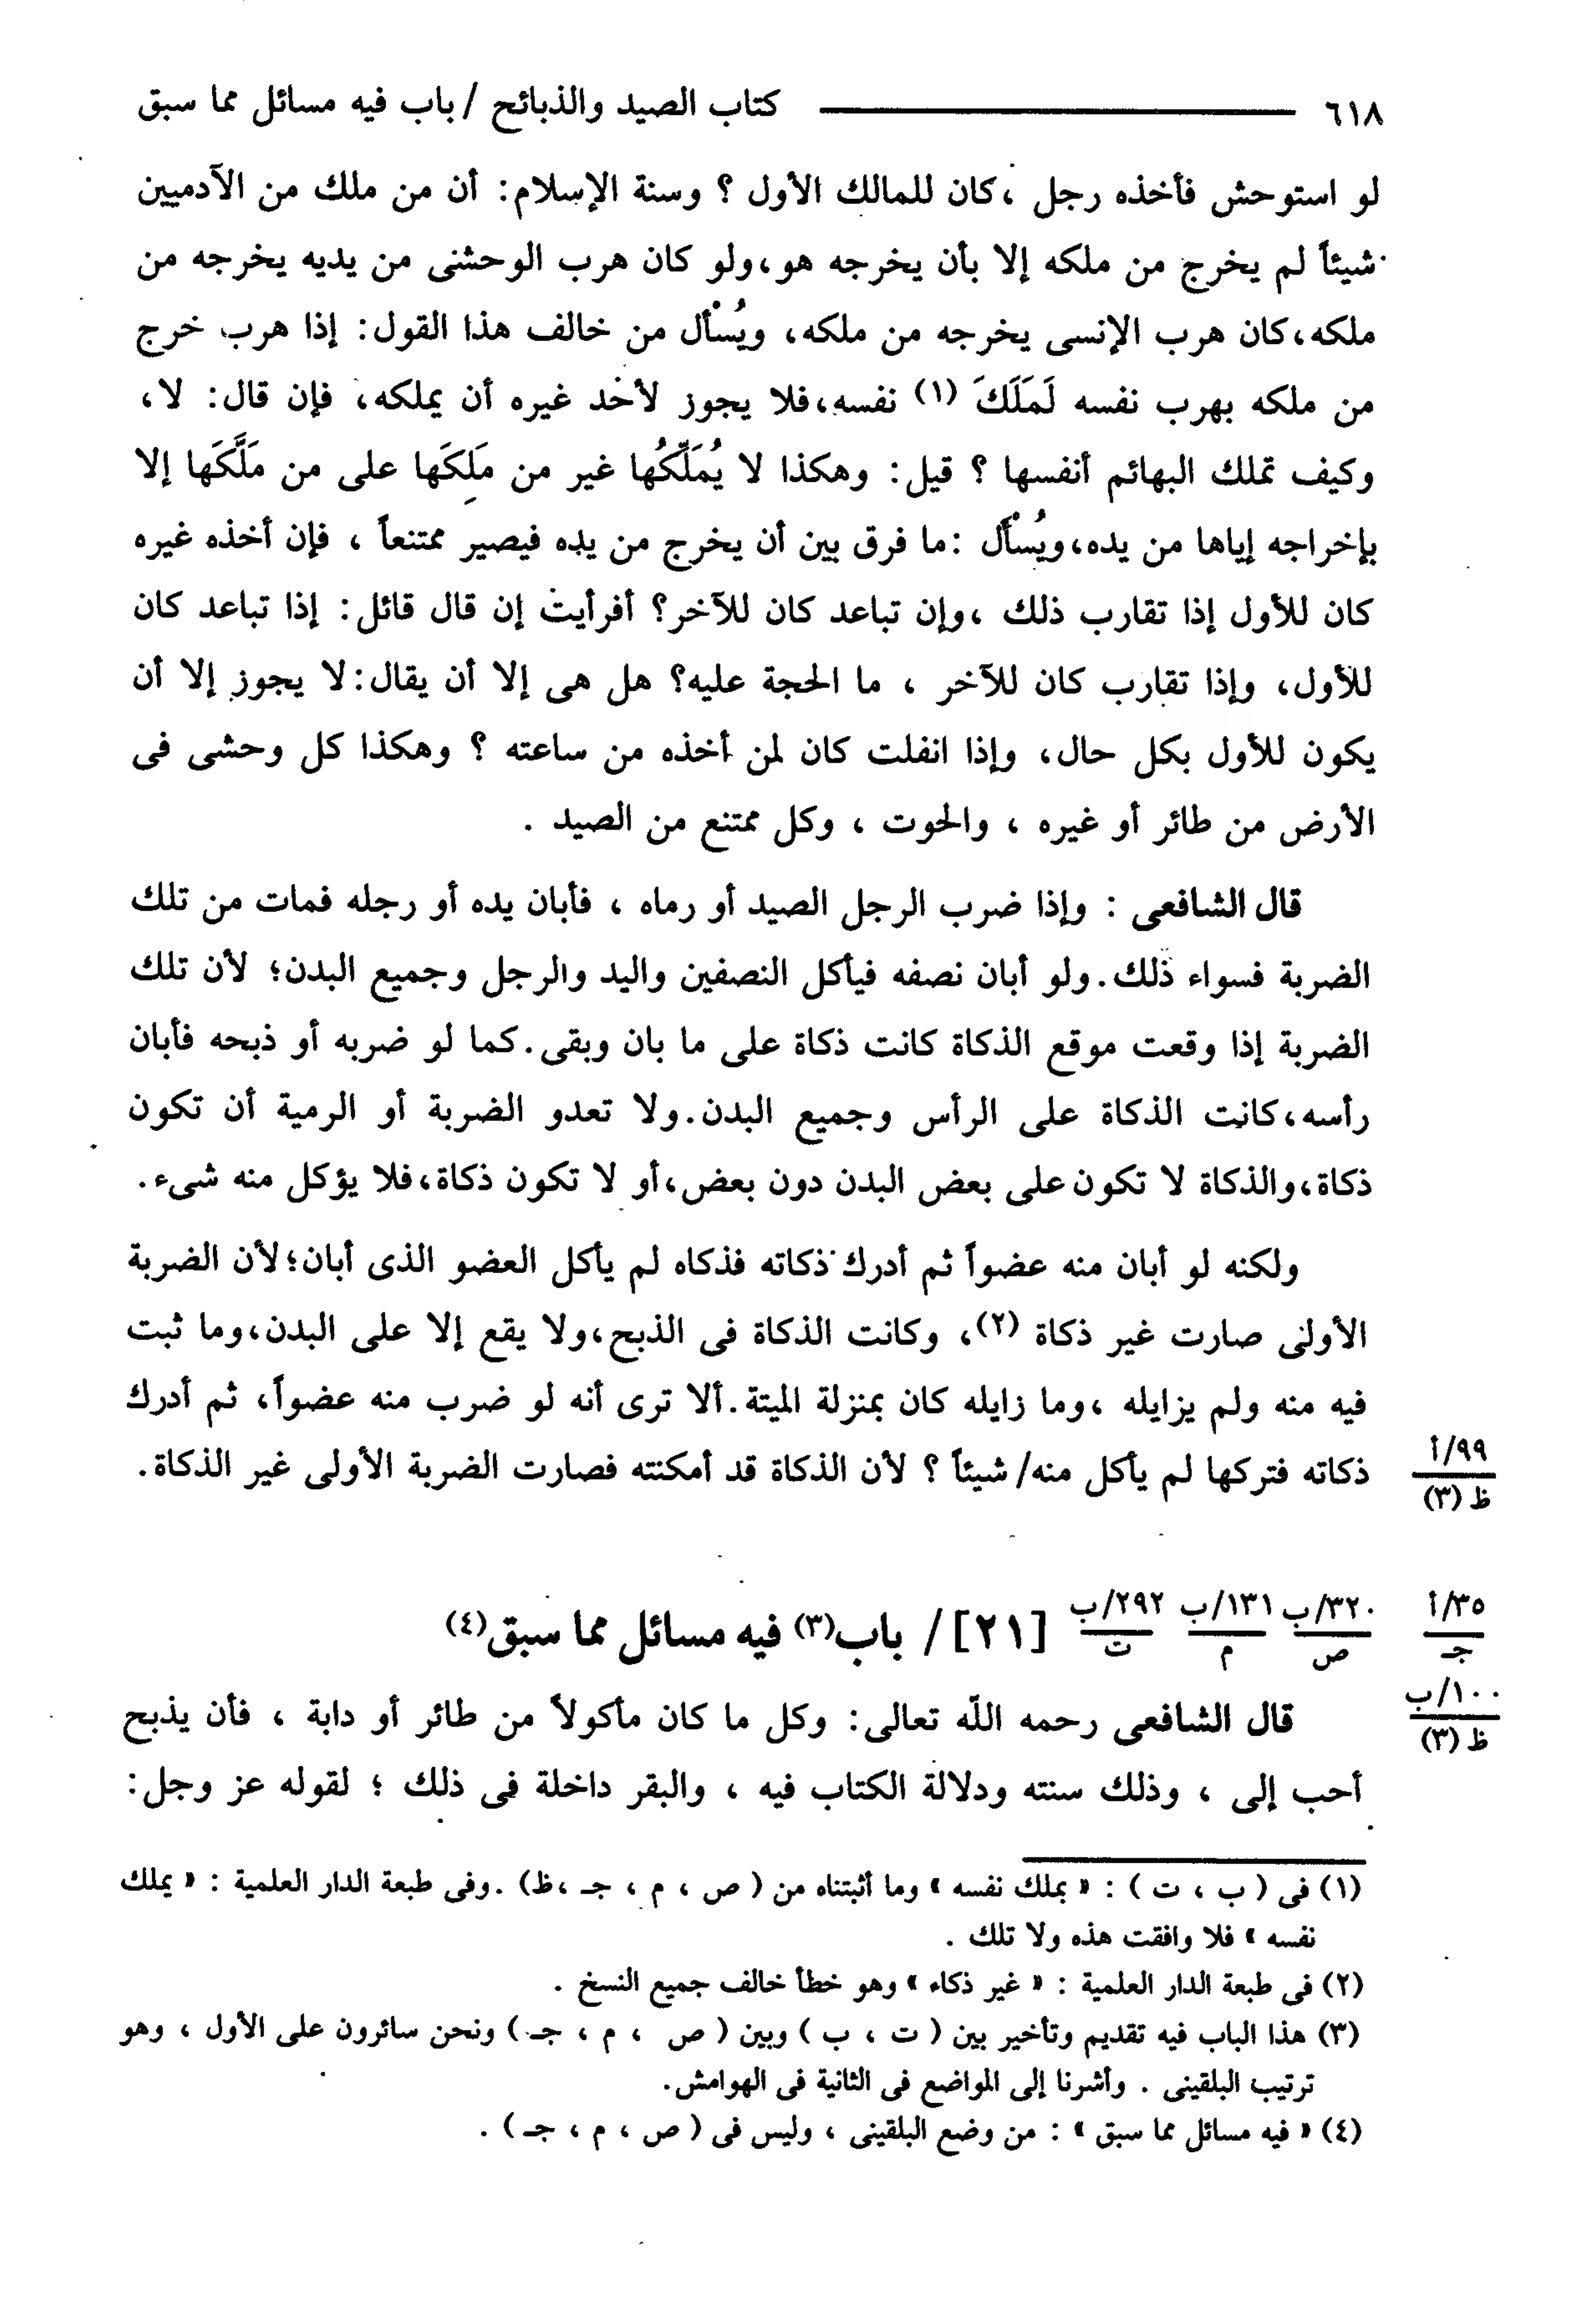 ٦١٨ ــــــــــــــــــــ كتاب الصيد والذبائح / باب فيه مسائل مما سبق
لو استوحش فأخذه رجل ، كان للمالك الأول ؟ وسنة الإسلام: أن من ملك من الآدميين
شيئاً لم يخرج من ملكه إلا بأن يخرجه هو، ولو كان هرب الوحشى من يديه يخرجه من
ملكه، كان هرب الإنسى يخرجه من ملكه، ويُسْأل من خالف هذا القول: إذا هرب خرج
من ملكه بهرب نفسه لَمَلَكَ (١) نفسه، فلا يجوز لأحد غيره أن يملكه، فإن قال: لا،
وكيف تملك البهائم أنفسها ؟ قيل: وهكذا لا يُمَلِّكُها غير من مَلِكَها على من مَلَّكَها إلا
بإخراجه إياها من يده، ويُسْأَل :ما فرق بين أن يخرج من يده فيصير ممتنعاً ، فإن أخذه غيره
كان للأول إذا تقارب ذلك ، وإن تباعد كان للآخر؟ أفرأيت إن قال قائل: إذا تباعد كان
للأول، وإذا تقارب كان للآخر ، ما الحجة عليه؟ هل هى إلا أن يقال: لا يجوز إلا أن
يكون للأول بكل حال، وإذا انفلت كان لمن أخذه من ساعته ؟ وهكذا كل وحشى فى
الأرض من طائر أو غيره ، والحوت ، وكل ممتنع من الصيد .
قال الشافعى : وإذا ضرب الرجل الصيد أو رماه ، فأبان يده أو رجله فمات من تلك
الضربة فسواء ذلك. ولو أبان نصفه فيأكل النصفين واليد والرجل وجميع البدن؛ لأن تلك
الضربة إذا وقعت موقع الذكاة كانت ذكاة على ما بان وبقى. كما لو ضربه أو ذبحه فأبان
رأسه، كانت الذكاة على الرأس وجميع البدن. ولا تعدو الضربة أو الرمية أن تكون
ذكاة، والذكاة لا تكون على بعض البدن دون بعض، أو لا تكون ذكاة، فلا يؤكل منه شىء.
ولكنه لو أبان منه عضواً ثم أدرك ذكاته فذكاه لم يأكل العضو الذى أبان؛ لأن الضربة
الأولى صارت غير ذكاة (٢)، وكانت الذكاة فى الذبح، ولا يقع إلا على البدن، وما ثبت
فيه منه ولم يزايله ، وما زايله كان بمنزلة الميتة. ألا ترى أنه لو ضرب منه عضواً، ثم أدرك
ذكاته فتركها لم يأكل منه/ شيئاً ؟ لأن الذكاة قد أمكنته فصارت الضربة الأولى غير الذكاة.
٩٩/أ
ظ (٣)
٣٥/أ
جـ
٣٢٠/ب
ص
١٣١/ب
م
٢٩٢/ب
ت
[٢١] / باب(٣) فيه مسائل مما سبق(٤)
١٠٠/ب
ظ (٣)
قال الشافعى رحمه الله تعالى: وكل ما كان مأكولاً من طائر أو دابة ، فأن يذبح
أحب إلى ، وذلك سنته ودلالة الكتاب فيه ، والبقر داخلة فى ذلك ؛ لقوله عز وجل:
(١) فى ( ب ، ت ) : « بملك نفسه » وما أثبتناه من ( ص ، م ، جـ ، ظ) . وفى طبعة الدار العلمية : « يملك
نفسه » فلا وافقت هذه ولا تلك .
(٢) فى طبعة الدار العلمية : « غير ذكاء » وهو خطأ خالف جميع النسخ .
(٣) هذا الباب فيه تقديم وتأخير بين ( ت ، ب ) وبين ( ص ، م ، جـ ) ونحن سائرون على الأول ، وهو
ترتيب البلقينى . وأشرنا إلى المواضع فى الثانية فى الهوامش.
(٤) « فيه مسائل مما سبق » : من وضع البلقينى ، وليس فى ( ص ، م ، جـ ) .